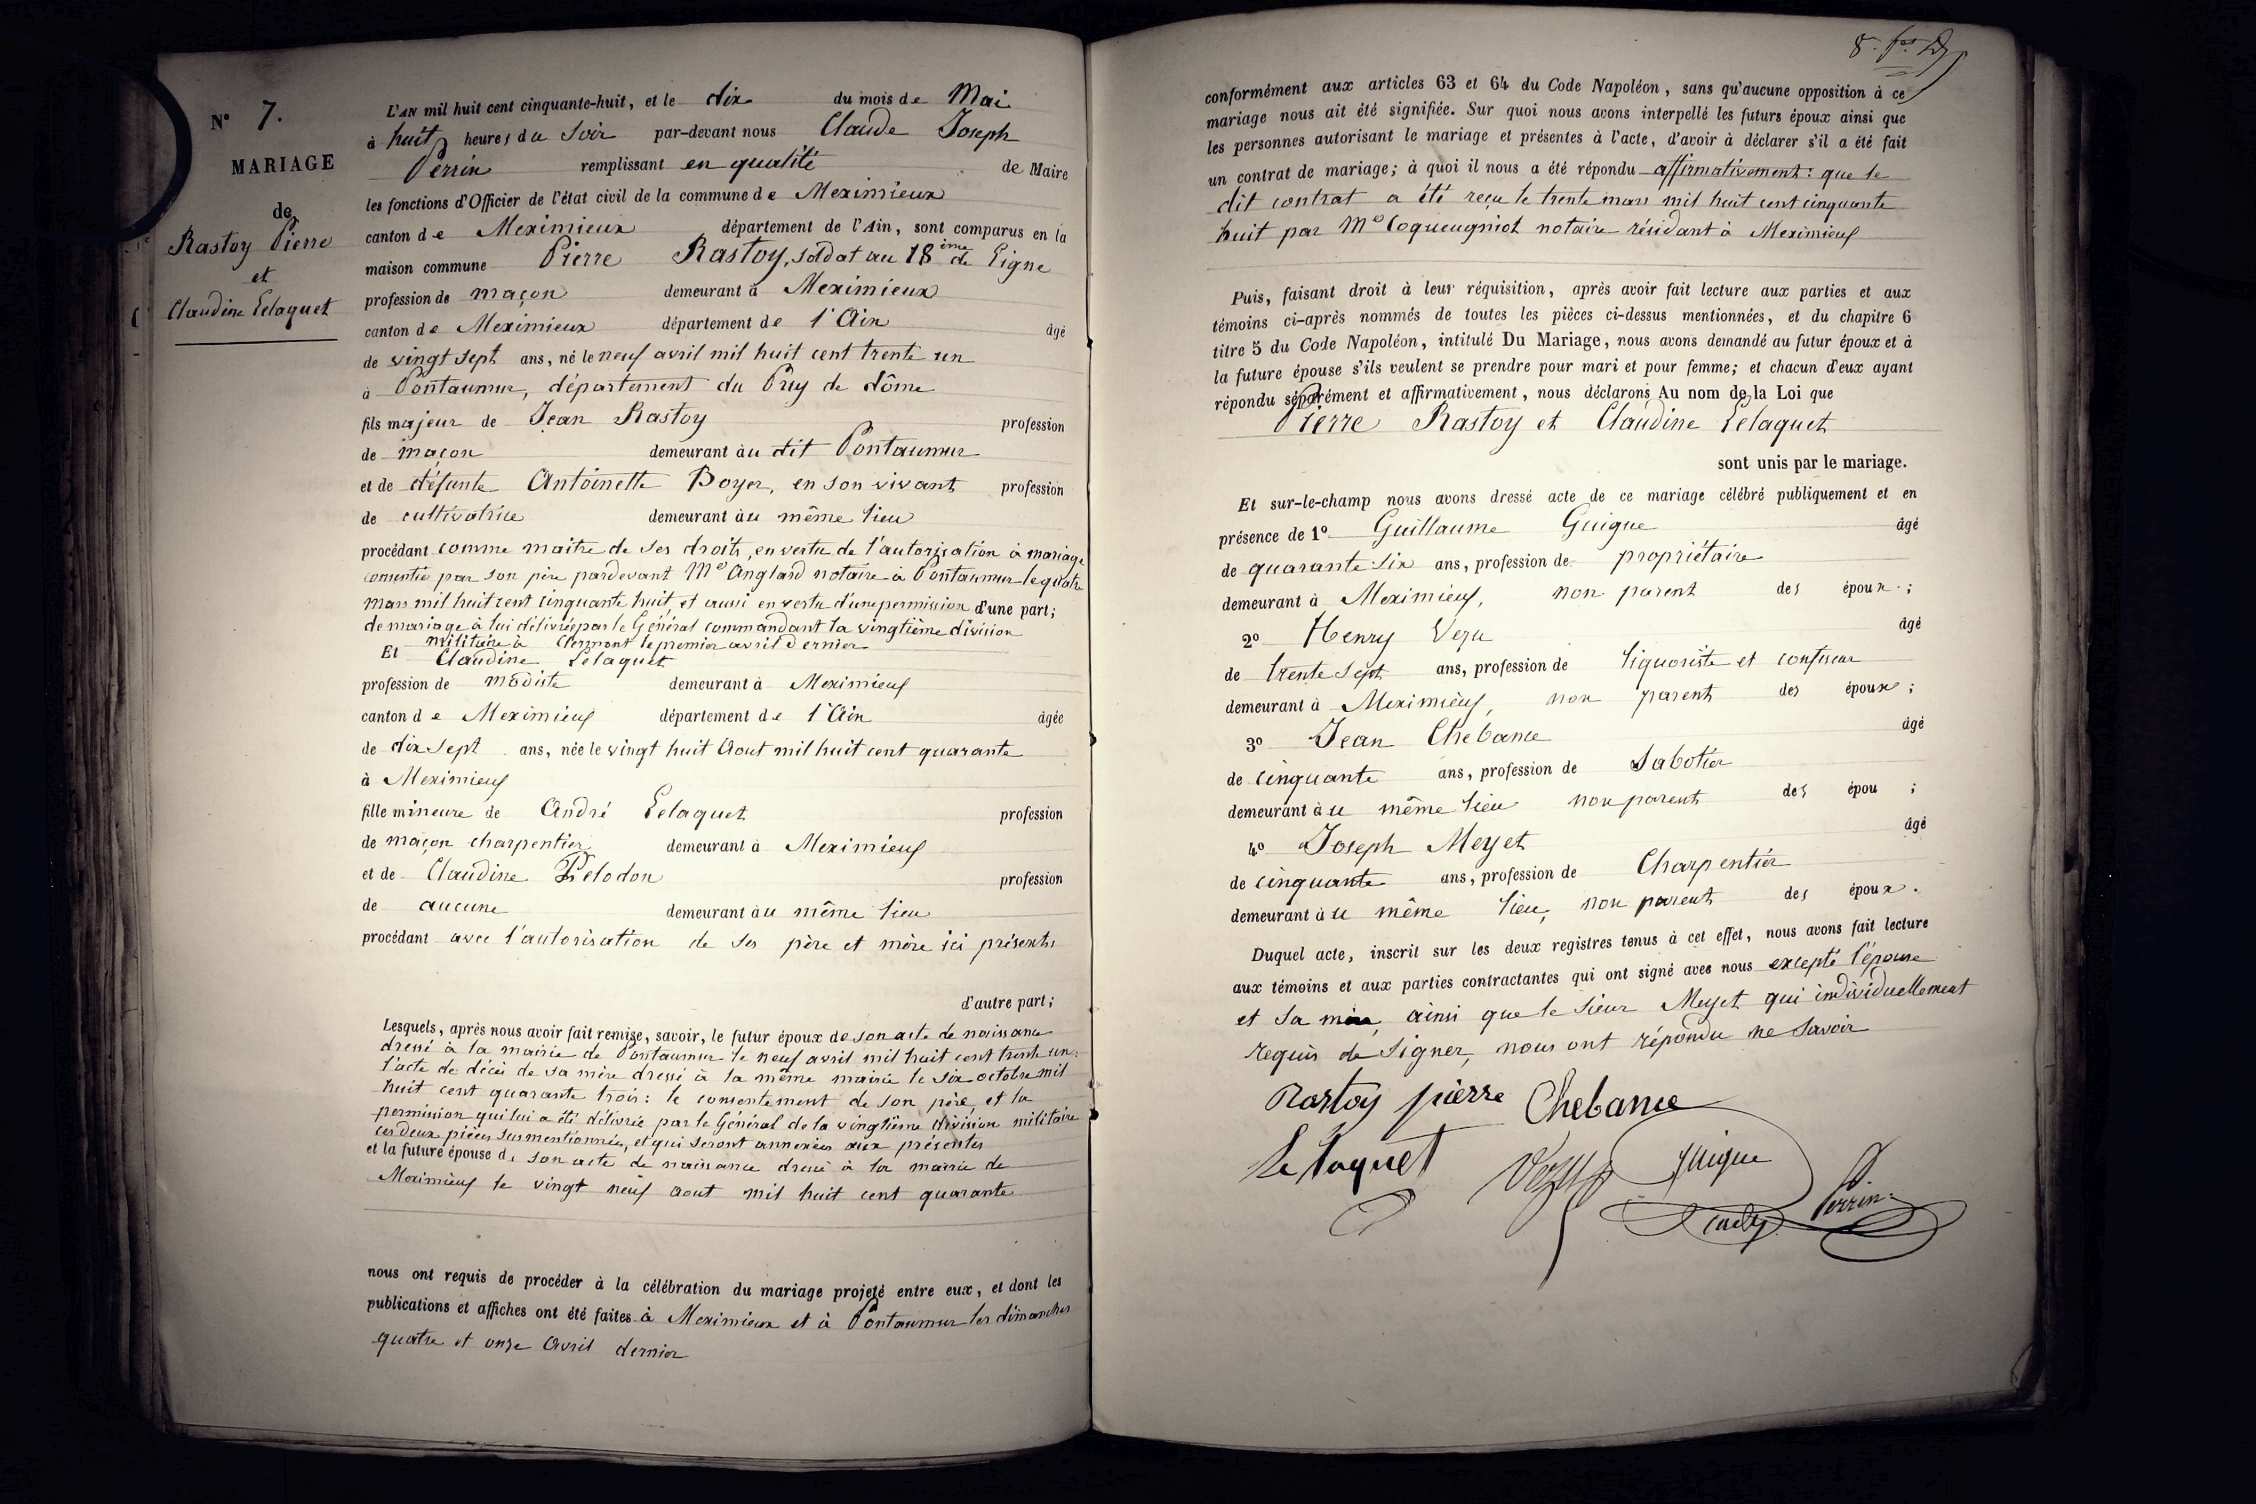 N° 7.
MARIAGE
de
Rastoy Pierre
et
Claudine Lelaquet
L'AN mil huit cent cinquante-huit, et le dix du mois de Mai
à huit heures du soir par-devant nous Claude Joseph
Perrin remplissant en qualité de Maire
les fonctions d'Officier de l'état civil de la commune de Meximieux
canton de Meximieux département de l'Ain, sont comparus en la
maison commune Pierre Rastoy, soldat au 18ème de Ligne
profession de maçon demeurant à Meximieux
canton de Meximieux département de l'Ain âgé
de vingt sept ans, né le neuf avril mil huit cent trente un
à Pontaumur, département du Puy de dôme
fils majeur de Jean Rastoy profession
de maçon demeurant au dit Pontaumur
et de défunte Antoinette Boyer, en son vivant profession
de cultivatrice demeurant au même lieu
procédant comme maître de ses droits, en vertu de l'autorisation à mariage
consentie par son père pardevant Me Anglard notaire à Pontaumur le quatre
mars mil huit cent cinquante huit, et aussi en vertu d'une permission d'une part;
de mariage à lui délivrée par le Général commandant la vingtième division
militaire à Clermont le premier avril dernier
Et Claudine Lelaquet
profession de modiste demeurant à Meximieux
canton de Meximieux département de l'Ain âgée
de dix sept ans, née le vingt huit Aout mil huit cent quarante
à Meximieux
fille mineure de André Lelaquet profession
de maçon charpentier demeurant à Meximieux
et de Claudine Pelodon profession
de aucune demeurant au même lieu
procédant avec l'autorisation de ses père et mère ici présents
d'autre part;
Lesquels, après nous avoir fait remise, savoir, le futur époux de son acte de naissance
dressé à la mairie de Pontaumur le neuf avril mil huit cent trente un:
l'acte de décès de sa mère dressé à la même mairie le six octobre mil
huit cent quarante trois: le consentement de son père, et la
permission qui lui a été délivrée par le Général de la vingtième division militaire
ces deux pièces susmentionnées, et qui seront annexées aux présentes
et la future épouse de son acte de naissance dressé à la mairie de
Meximieux le vingt neuf aout mil huit cent quarante
nous ont requis de procéder à la célébration du mariage projeté entre eux, et dont les
publications et affiches ont été faites à Meximieux et à Pontaumur les dimanches
quatre et onze Avril dernier
conformément aux articles 63 et 64 du Code Napoléon, sans qu'aucune opposition à ce
mariage nous ait été signifiée. Sur quoi nous avons interpellé les futurs époux ainsi que
les personnes autorisant le mariage et présentes à l'acte, d'avoir à déclarer s'il a été fait
un contrat de mariage; à quoi il nous a été répondu affirmativement: que le
dit contrat a été reçu le trente mars mil huit cent cinquante
huit par Me Coqueugniot notaire résidant à Meximieux
Puis, faisant droit à leur réquisition, après avoir fait lecture aux parties et aux
témoins ci-après nommés de toutes les pièces ci-dessus mentionnées, et du chapitre 6
titre 5 du Code Napoléon, intitulé Du Mariage, nous avons demandé au futur époux et à
la future épouse s'ils veulent se prendre pour mari et pour femme; et chacun d'eux ayant
répondu séparément et affirmativement, nous déclarons Au nom de la Loi que
Pierre Rastoy et Claudine Lelaquet
sont unis par le mariage.
Et sur-le-champ nous avons dressé acte de ce mariage célébré publiquement et en
présence de 1° Guillaume Guigue âgé
de quarante six ans, profession de propriétaire
demeurant à Meximieux, non parent des époux;
2° Henry Vezu âgé
de trente sept ans, profession de liquoriste et confiseur
demeurant à Meximieux, non parent des époux;
3° Jean Chebance âgé
de cinquante ans, profession de Sabotier
demeurant au même lieu non parent des épou ;
4° Joseph Meyet âgé
de cinquante ans, profession de Charpentier
demeurant au même lieu, non parent des époux.
Duquel acte, inscrit sur les deux registres tenus à cet effet, nous avons fait lecture
aux témoins et aux parties contractantes qui ont signé avec nous excepté l'épouse
et sa mère, ainsi que le sieur Meyet qui individuellement
requis de signer, nous ont répondu ne savoir
Rastoy pierre Chebance
Le laquet Vezu Guigue
Perrin